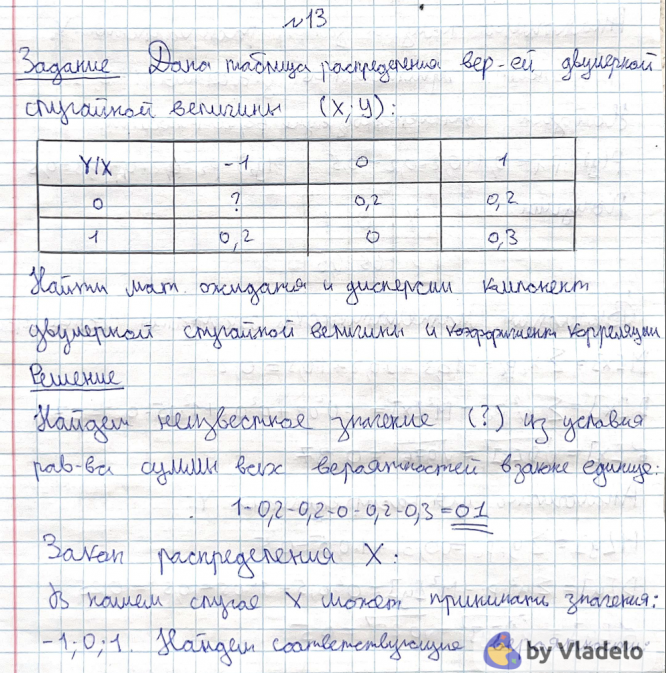 №13
Задание Дана таблица распределения вер-ей двумерной
случайной величины (X; Y):
Y/X -1 0 1
0 ? 0,2 0,2
1 0,2 0 0,3
Найти мат. ожидания и дисперсии компонент
двумерной случайной величины и коэффициент корреляции
Решение
Найдем неизвестное значение (?) из условия
рав-ва суммы всех вероятностей в законе единице:
1-0,2-0,2-0-0,2-0,3=0,1
Закон распределения X:
В нашем случае X может принимать значения:
-1; 0; 1. Найдем соответствующие
by Vladelo